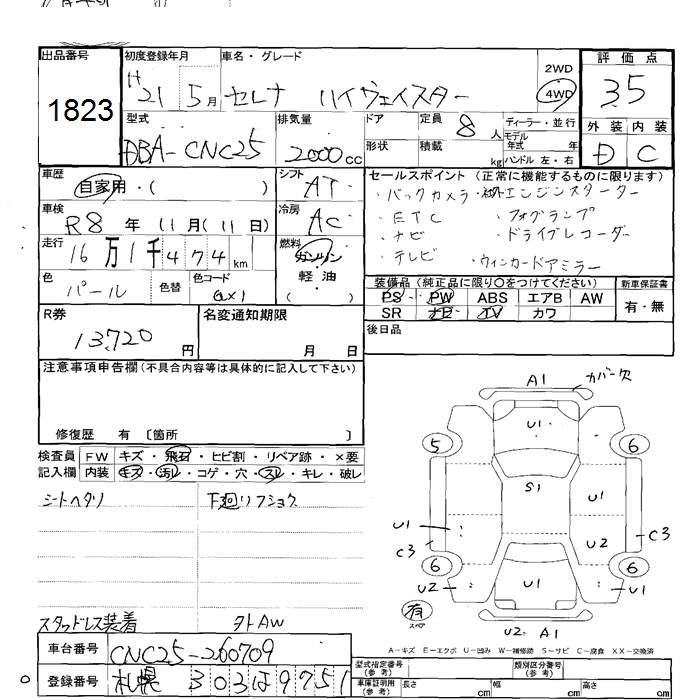 出品番号 初度登録年月 車名・グレード 2WD 評価点
1823 H21 5月 セレナ ハイウェイスター 4WD 3.5
型式 排気量 ドア 定員 8人 ディーラー・並行 外装 内装
DBA-CNC25 2000cc 形状 積載 kg モデル年式 年 ハンドル 左・右 D C
車歴 自家用・( ) シフト AT セールスポイント (正常に機能するものに限ります)
・バックカメラ ・社外エンジンスターター
車検 R8年 11月(11日) 冷房 AC ・ETC ・フォグランプ
・ナビ ・ドライブレコーダー
走行 16万1千474km 燃料 ガソリン 軽・油 ( ) ・テレビ ・ウィンカードアミラー
色 パール 色替 色コード QX1 装備品 (純正品に限り○をつけてください) 新車保証書
PS PW ABS エアB AW 有・無
SR ナビ TV カワ
R券 13,720円 名変通知期限 月 日 後日品
注意事項申告欄(不具合内容等は具体的に記入して下さい)
修復歴 有 〔箇所 〕
検査員 FW キズ・飛石・ヒビ割・リペア跡・×要
記入欄 内装 キズ・汚レ・コゲ・穴・スレ・キレ・破レ
シートヘタリ 下廻リフショク
スタッドレス装着 夕トAW
A1 カバー欠
U1
5 6
S1 U1
U1 C3 U2 C3
6 6
U2 U1 U1
有 スペア
U2 A1
A-キズ E-エクボ U-凹み W-補修跡 S-サビ C-腐食 XX-交換済
車台番号 CNC25-260709
登録番号 札幌 303 は 9751
型式指定番号(参考) 類別区分番号(参考)
車庫証明用(参考) 長さ cm 幅 cm 高さ cm